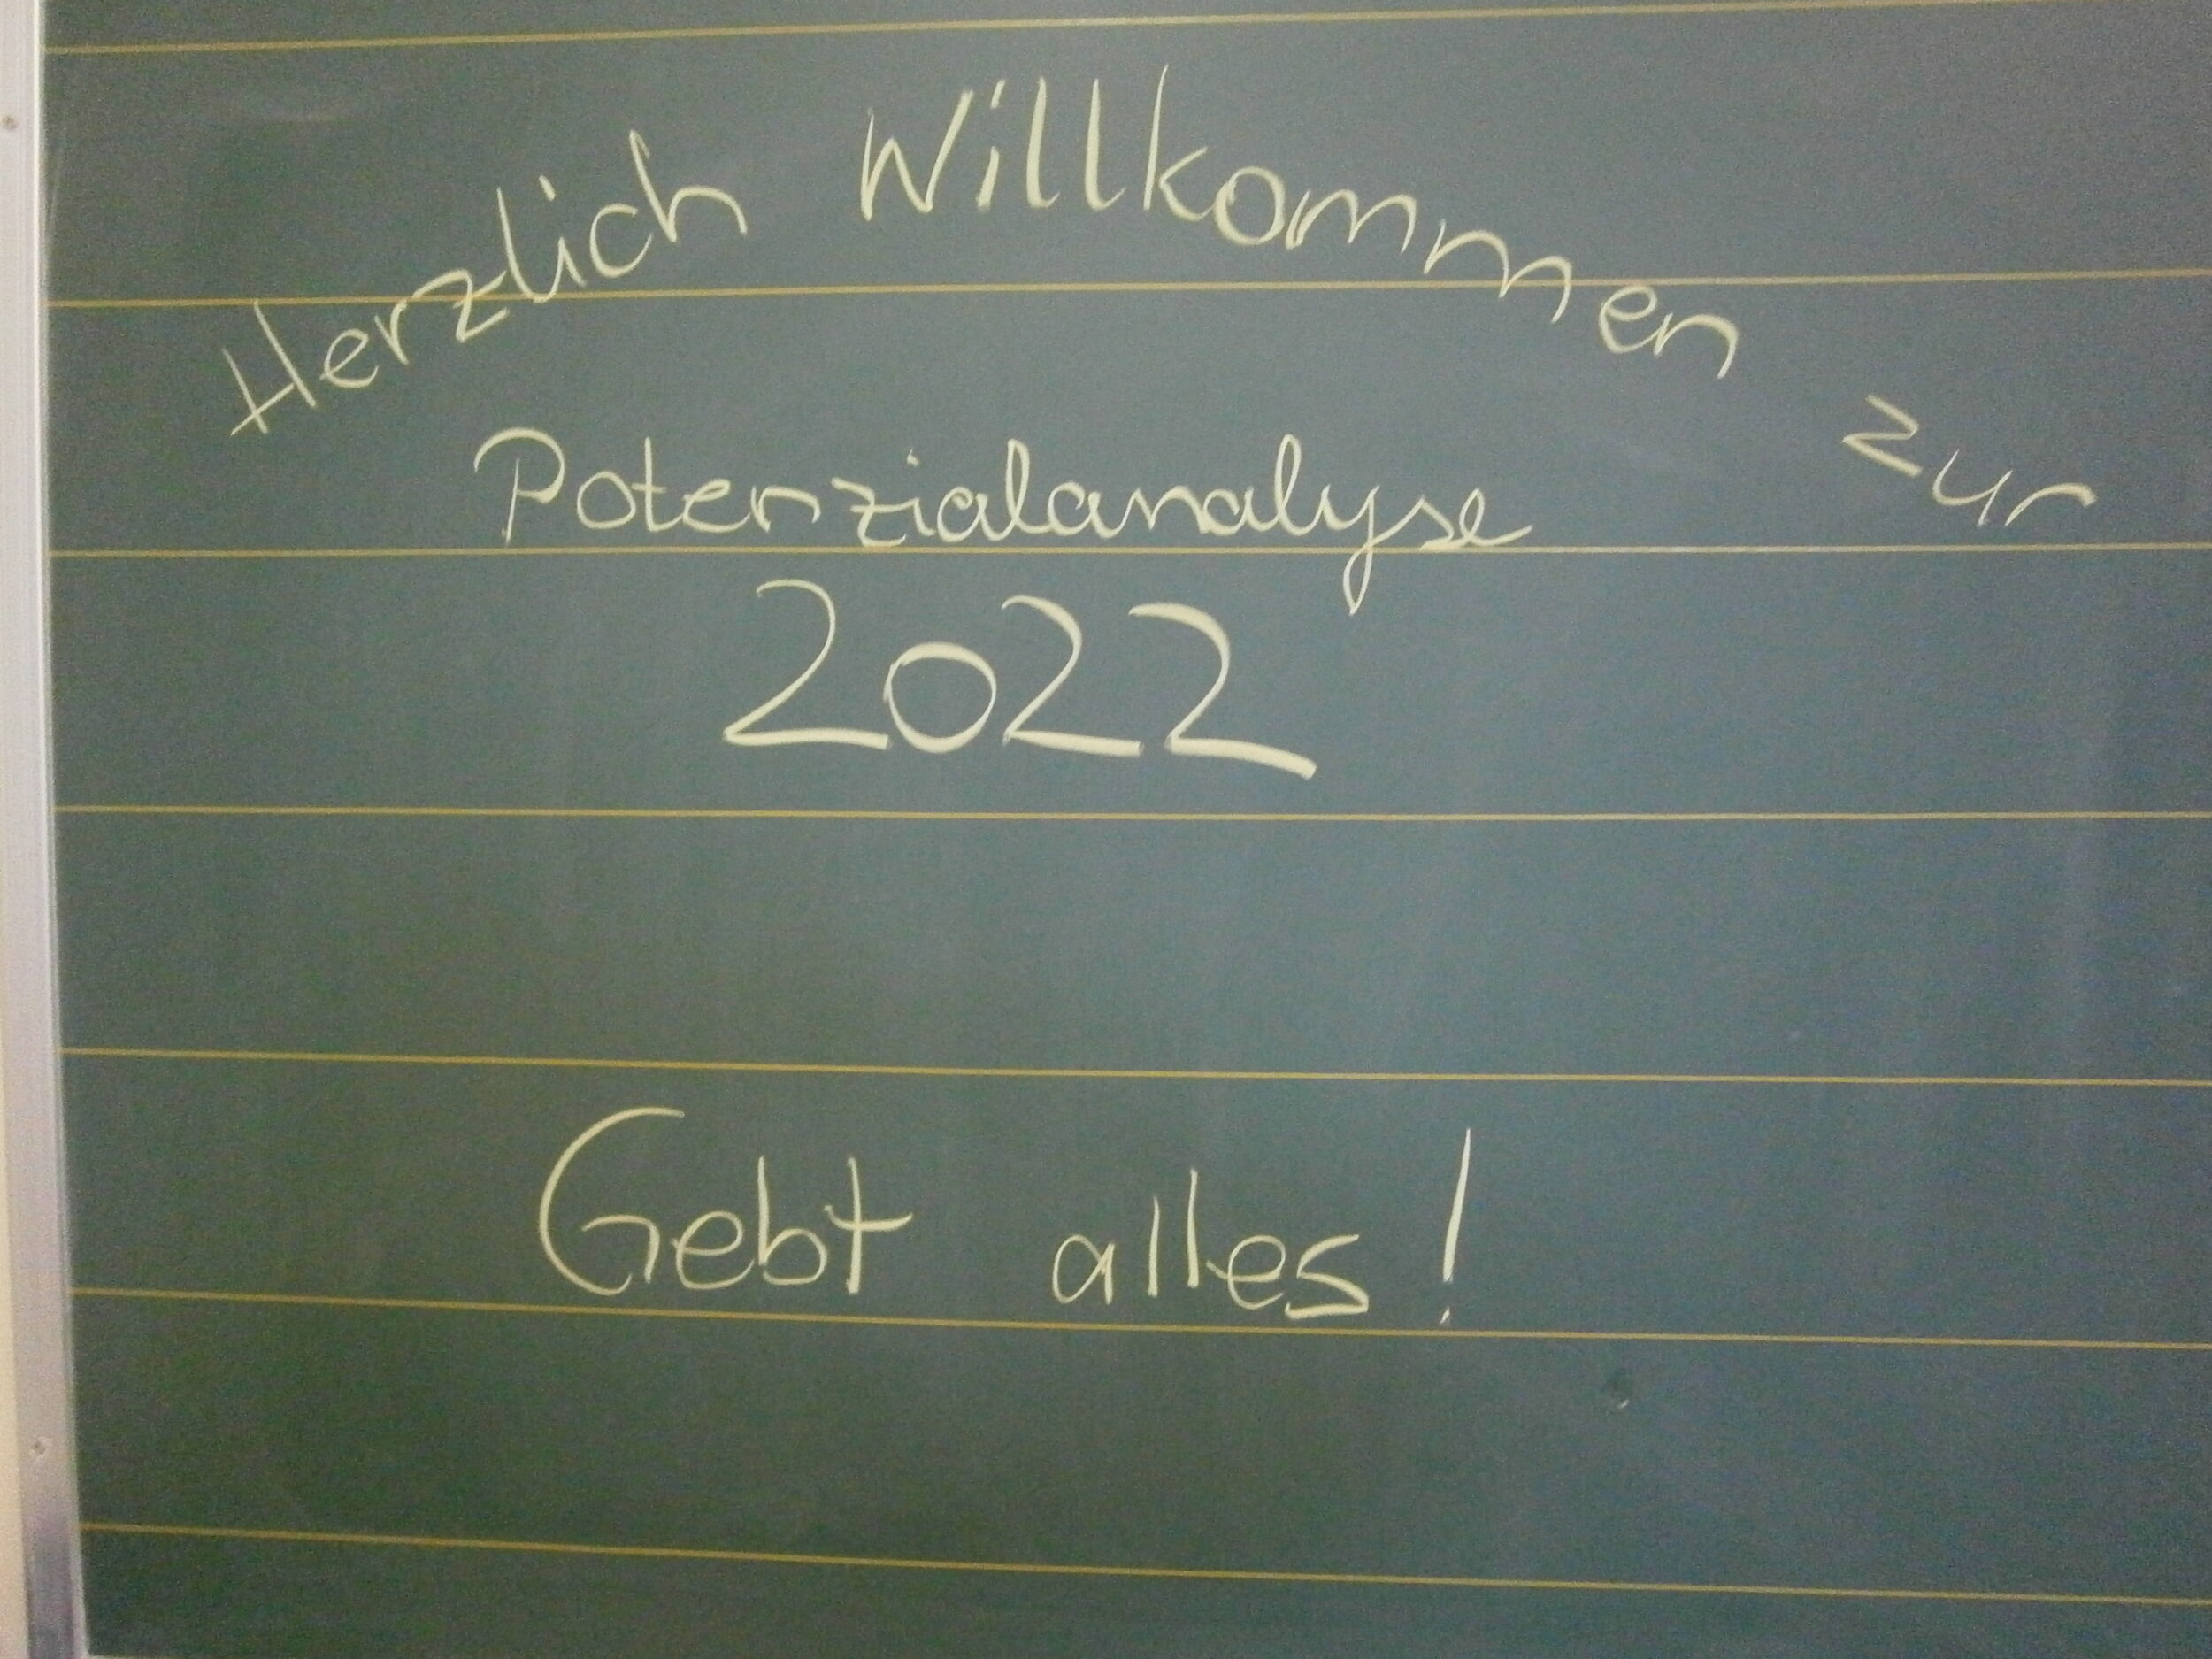 Herzlich Willkommen zur
Potenzialanalyse
2022
Gebt alles!